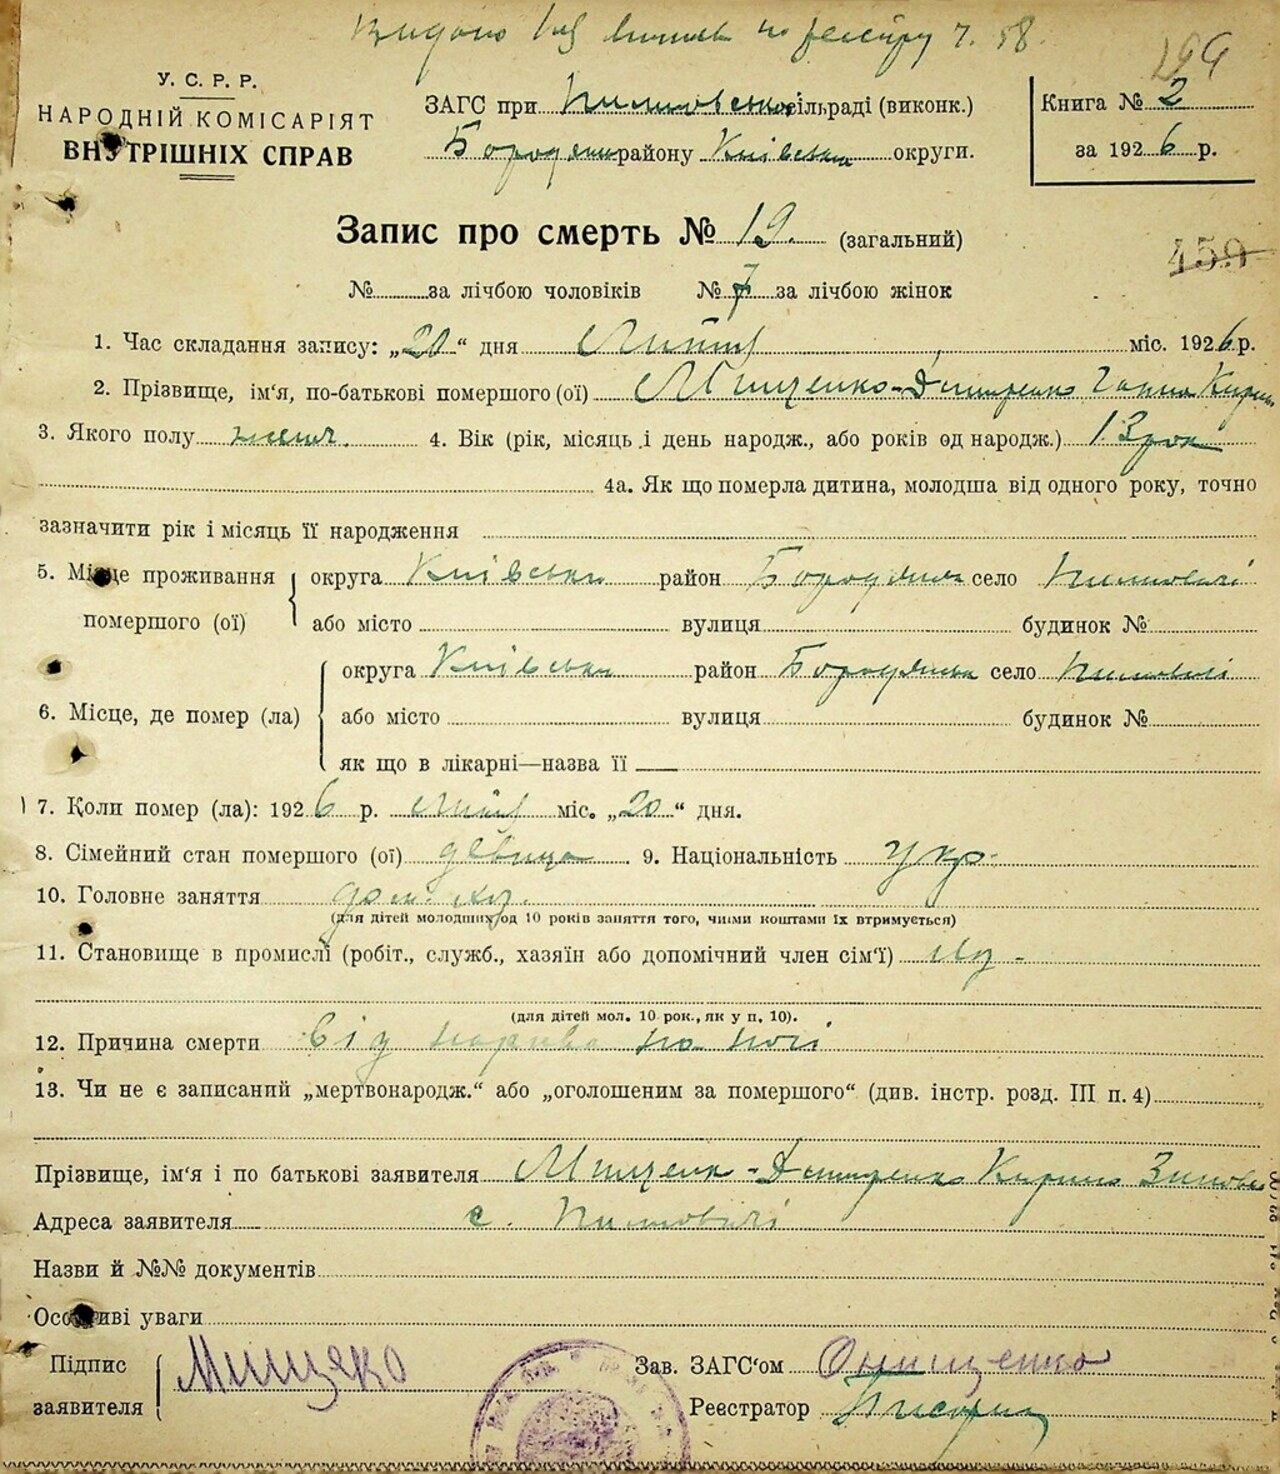 Видано
У. С. Р. Р.
НАРОДНІЙ КОМІСАРІЯТ
ВНУТРІШНІХ СПРАВ
ЗАГС при сільраді (виконк.)
Бородян району Київська округи.
Книга № 2
за 1926 р.
Запис про смерть № 19. (загальний)
459
№ за лічбою чоловіків № 7 за лічбою жінок
1. Час складання запису: „20“ дня міс. 1926 р.
2. Прізвище, ім'я, по-батькові помершого (ої) Мищенко-Дмитренко Ганна Кирил
3. Якого полу 4. Вік (рік, місяць і день народж., або років од народж.) 13 рок
4а. Як що померла дитина, молодша від одного року, точно
зазначити рік і місяць її народження
5. Місце проживання помершого (ої) округа Київська район Бородянськ село
або місто вулиця будинок №
6. Місце, де помер (ла) округа Київська район Бородянськ село
або місто вулиця будинок №
як що в лікарні—назва її
7. Коли помер (ла): 1926 р. міс. „20“ дня.
8. Сімейний стан помершого (ої) девица 9. Національність укр.
10. Головне заняття
(для дітей молодших од 10 років заняття того, чиїми коштами їх втримується)
11. Становище в промислі (робіт., служб., хазяїн або допомічний член сім'ї)
(для дітей мол. 10 рок., як у п. 10).
12. Причина смерти від нарива на нозі
13. Чи не є записаний „мертвонародж.“ або „оголошеним за помершого“ (див. інстр. розд. III п. 4)
Прізвище, ім'я і по батькові заявителя Мищенк-Дмитренко Кирило
Адреса заявителя с.
Назви й №№ документів
Особливі уваги
Підпис заявителя Мищеко
Зав. ЗАГС'ом Онищенко
Реєстратор